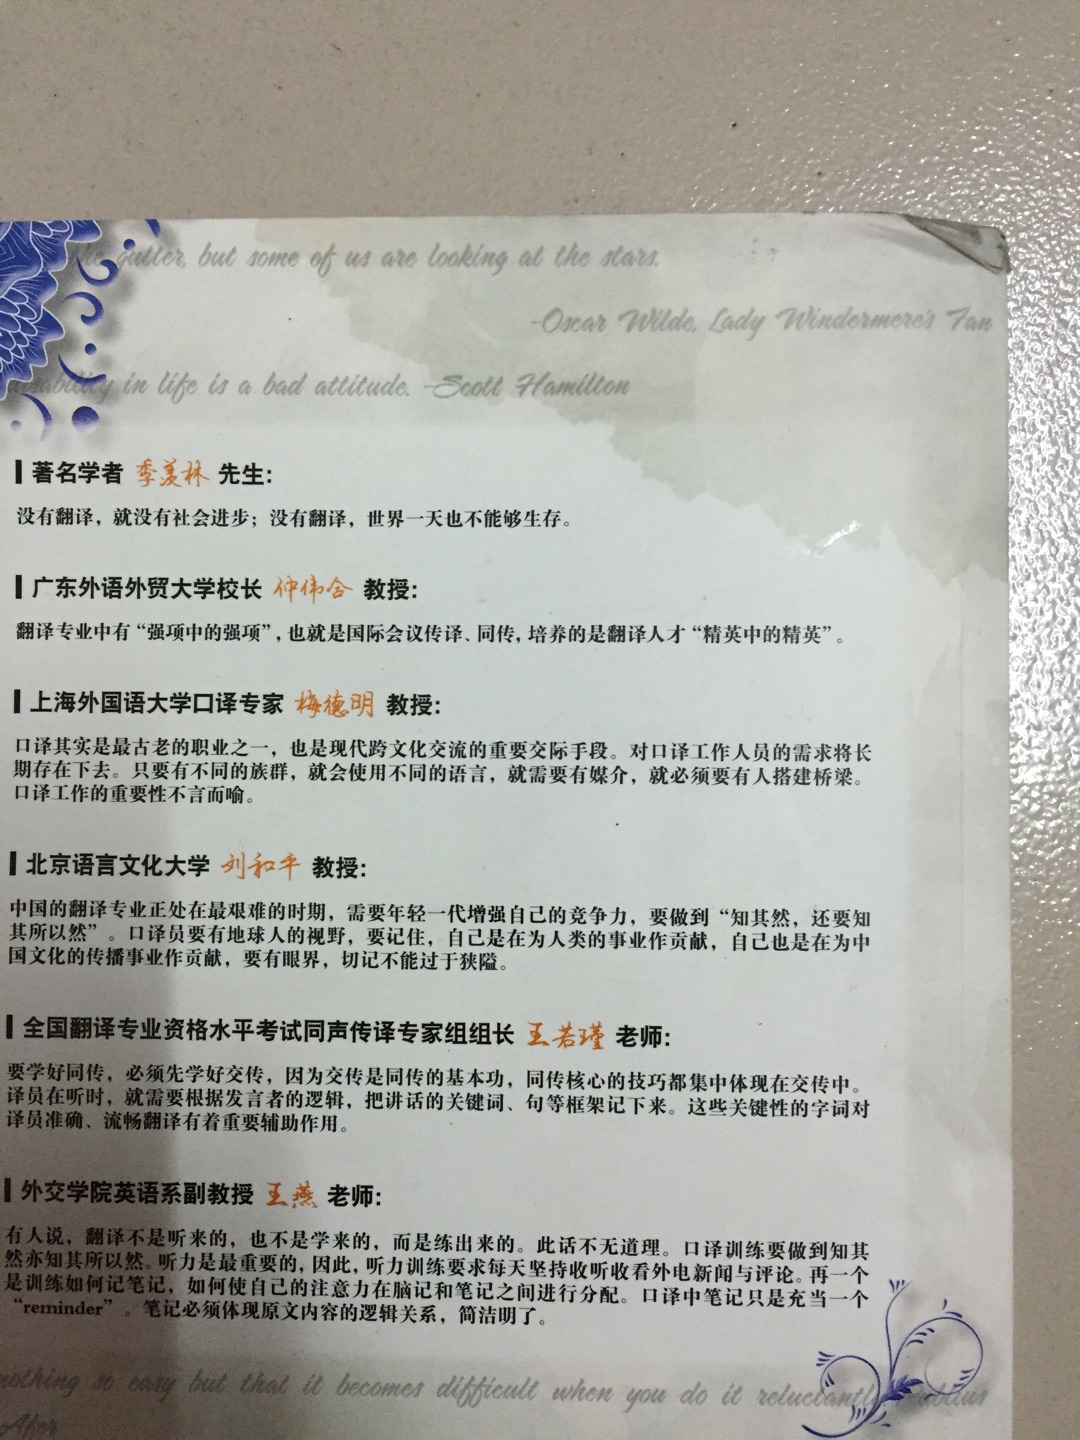 the gutter, but some of us are looking at the stars.
-Oscar Wilde, Lady Windermere's Fan
disability in life is a bad attitude. -Scott Hamilton
著名学者 季羡林 先生:
没有翻译，就没有社会进步；没有翻译，世界一天也不能够生存。
广东外语外贸大学校长 仲伟合 教授:
翻译专业中有“强项中的强项”，也就是国际会议传译、同传，培养的是翻译人才“精英中的精英”。
上海外国语大学口译专家 梅德明 教授:
口译其实是最古老的职业之一，也是现代跨文化交流的重要交际手段。对口译工作人员的需求将长
期存在下去。只要有不同的族群，就会使用不同的语言，就需要有媒介，就必须要有人搭建桥梁。
口译工作的重要性不言而喻。
北京语言文化大学 刘和平 教授:
中国的翻译专业正处在最艰难的时期，需要年轻一代增强自己的竞争力，要做到“知其然，还要知
其所以然”。口译员要有地球人的视野，要记住，自己是在为人类的事业作贡献，自己也是在为中
国文化的传播事业作贡献，要有眼界，切记不能过于狭隘。
全国翻译专业资格水平考试同声传译专家组组长 王若瑾 老师:
要学好同传，必须先学好交传，因为交传是同传的基本功，同传核心的技巧都集中体现在交传中。
译员在听时，就需要根据发言者的逻辑，把讲话的关键词、句等框架记下来。这些关键性的字词对
译员准确、流畅翻译有着重要辅助作用。
外交学院英语系副教授 王燕 老师:
有人说，翻译不是听来的，也不是学来的，而是练出来的。此话不无道理。口译训练要做到知其
然亦知其所以然。听力是最重要的，因此，听力训练要求每天坚持收听收看外电新闻与评论。再一个
是训练如何记笔记，如何使自己的注意力在脑记和笔记之间进行分配。口译中笔记只是充当一个
“reminder”。笔记必须体现原文内容的逻辑关系，简洁明了。
nothing so easy but that it becomes difficult when you do it reluctantly
Afer